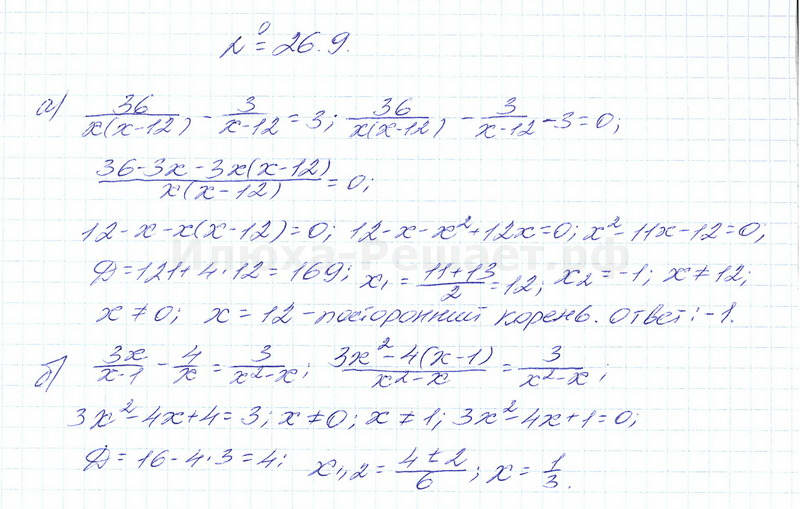 № 26.9.
а) 36/(x(x-12)) - 3/(x-12) = 3; 36/(x(x-12)) - 3/(x-12) - 3 = 0;
(36-3x-3x(x-12))/(x(x-12)) = 0;
12-x-x(x-12)=0; 12-x-x²+12x=0; x²-11x-12=0;
Илюха-Решает.рф
Д=121+4·12=169; x₁=(11+13)/2=12; x₂=-1; x≠12;
x≠0; x=12-посторонний корень. Ответ: -1.
б) 3x/(x-1) - 4/x = 3/(x²-x); (3x²-4(x-1))/(x²-x) = 3/(x²-x);
3x²-4x+4=3; x≠0; x≠1; 3x²-4x+1=0;
Д=16-4·3=4; x₁,₂=(4±2)/6; x=1/3.